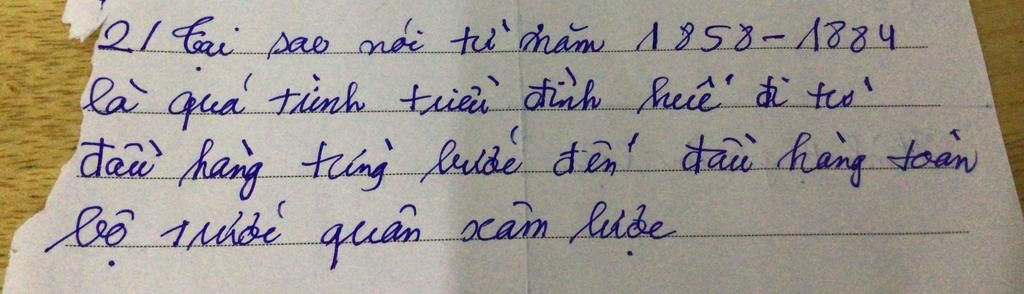 2/ Tại sao nói từ năm 1858-1884
là quá trình triều đình huế đi từ
đầu hàng từng bước đến đầu hàng toàn
bộ trước quân xâm lược